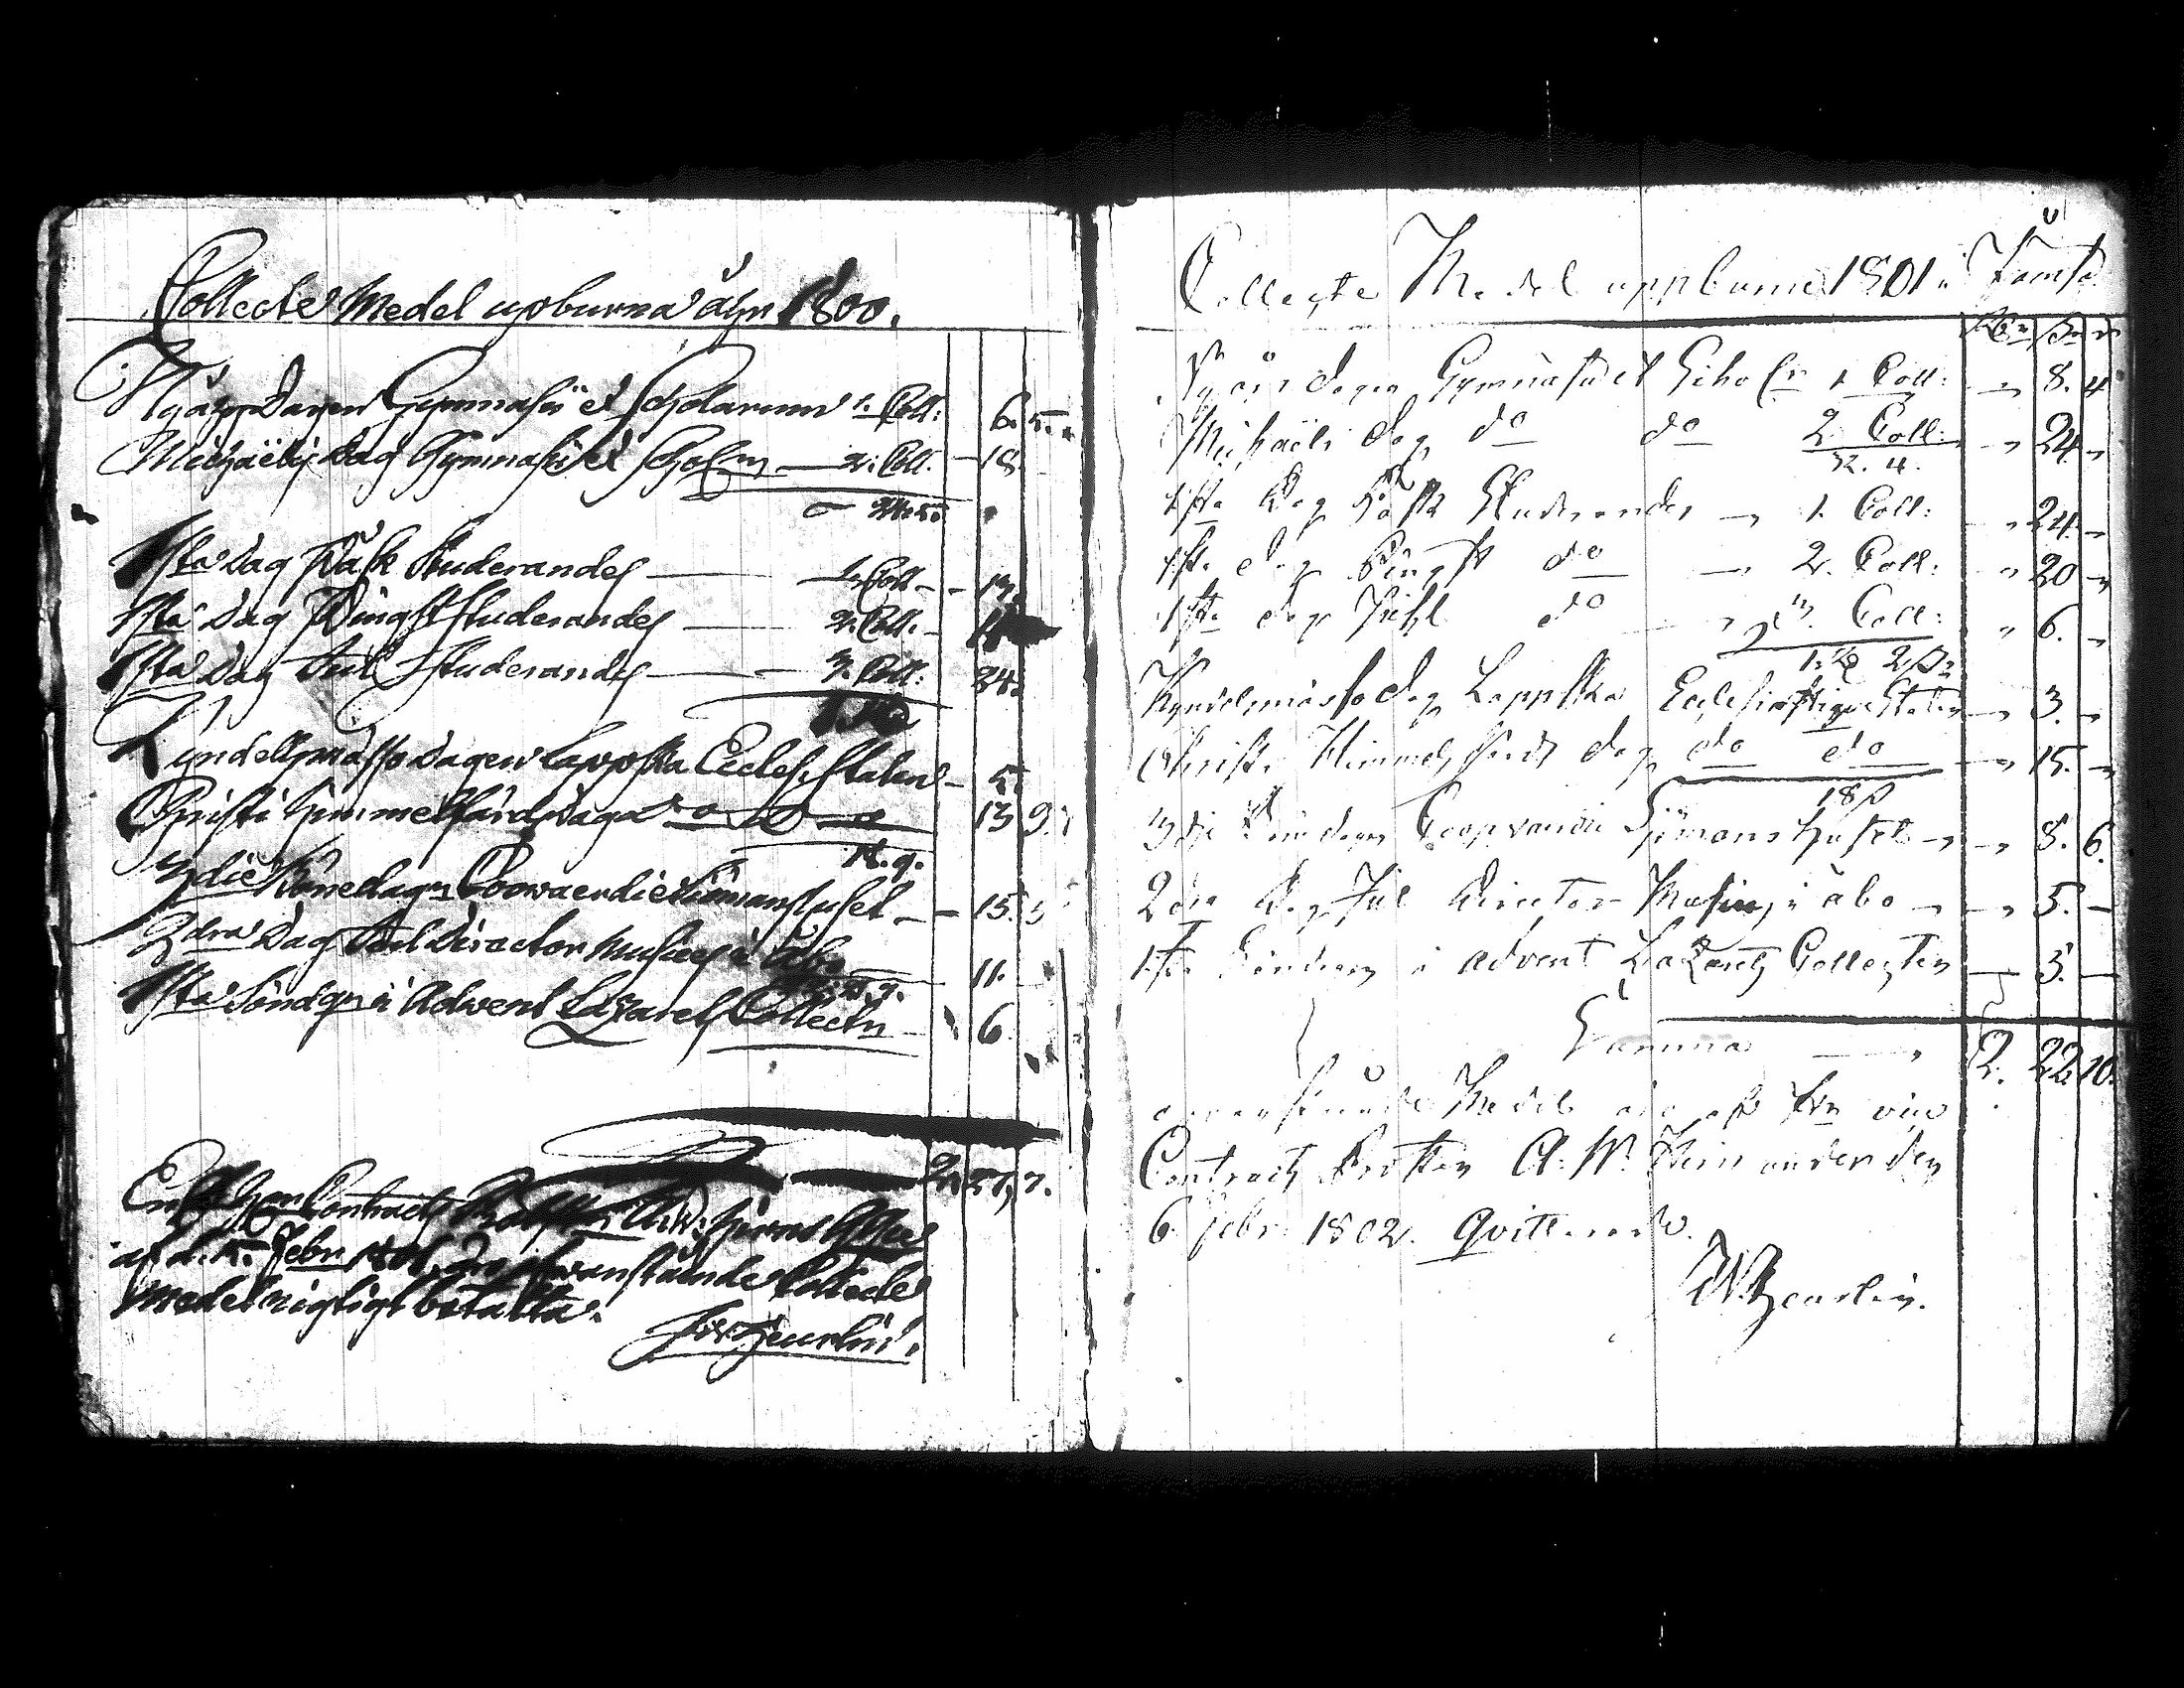 Collecte Medel upburna åhr 1800.
Nyårs Dagen Gymnasii et Scholarum 1. Coll: 6. 5.
Michaëlis Dag Gymnasii et Scholm — 2. Coll. — 18.
24. 5.
1sta Dag Påsk Studerandes — 1. Coll — 13.
1sta Dag Pingst Studerandes — 2. Coll. —
1sta Dag Jul Studerandes — 3. Coll: 24.
Kyndelsmässo Dagen Lappska Eccles. Staten — 5.
Christi Himmelsfärds Dag do do 13 9.
18. 9.
3die Bönedagn Coopvaerdie Siömans huset — 15. 5
2dra Dag Jul Director Musices i Åbo 11.
1sta Söndagn i Advent Lazaretz Collectn — 6.
2. 7.
Contracts Prosten
af d. 5. Febr. 1801, äro ofvanstående Collecte
Medel rigtigt betalta.
Collecte Medel uppburne 1801 i
Nyårs dagen Gymnasii et Scholn 1 Coll: — 8. 4
Michaëli dag do do 2. Coll: — 24 „
32. 4.
1sta Dag Påsk Studerandes — 1. Coll: „ 24. „
1sta dag Pingst do — 2. Coll: „ 20 „
1sta dag Juhl do 3. Coll: „ 6. „
Kyndelmässo dag Lappska Ecclesiastique Staten — 3. „
Christi Himmels färds dag do do — 15. „
18 ß
3die Bön dagen Coopvardie Sjömans huset — 8. 6.
2dra Dag Jul Director Musices i Åbo — 5. —
1sta Söndagen i Advent Lazaretz Collecten — 3. —
Summa — 2. 22. 10.
ofvanstående Medel
Contracts Prosten A. W. den
6 febr. 1802. Qvitterade.